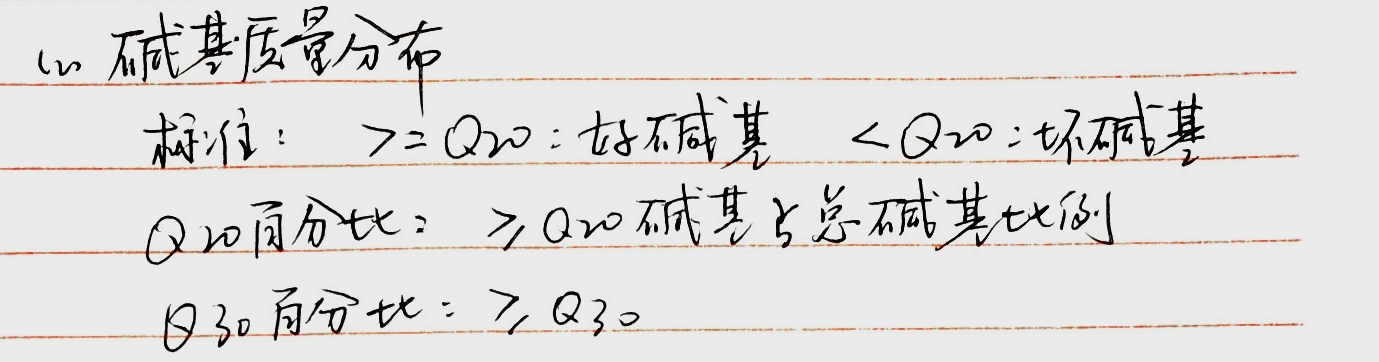 (2) 碱基质量分布
标准: >=Q20:好碱基 <Q20:坏碱基
Q20百分比: ≥Q20碱基占总碱基比例
Q30百分比: ≥Q30